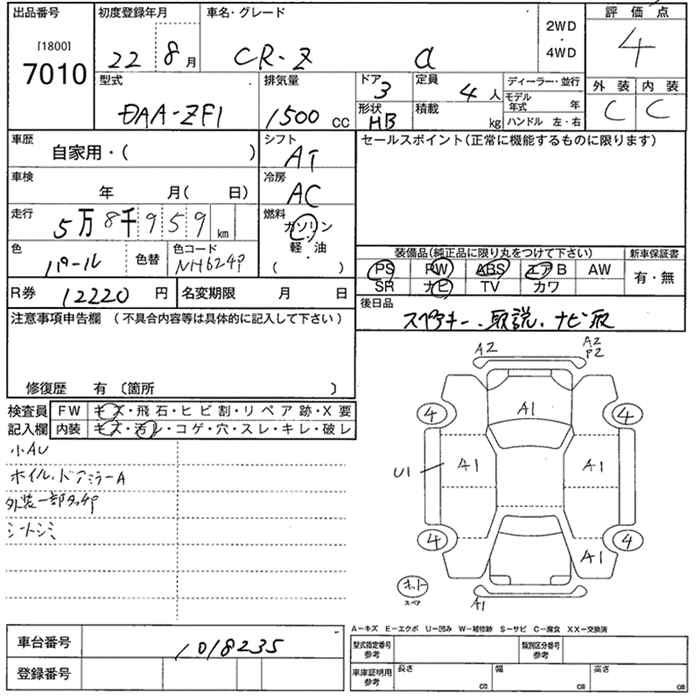 出品番号 初度登録年月 車名・グレード 評価点
[1800]
7010
22 8月 CR-Z α 2WD・4WD 4
型式 排気量 ドア 3 定員 4人 ディーラー・並行 外装 内装
DAA-ZF1 1500cc 形状 HB 積載 kg モデル年式 年 C C
ハンドル 左・右
車歴 自家用・( ) シフト AT セールスポイント(正常に機能するものに限ります)
車検 年 月( 日) 冷房 AC
走行 5万8千959km 燃料 ガソリン・軽・油
( )
色 パール 色替 色コード NH624P
装備品(純正品に限り丸をつけて下さい) 新車保証書
PS PW ABS エアB AW 有・無
SR ナビ TV カワ
R券 12220円 名変期限 月 日 後日品
スペアキー、取説、ナビ取
注意事項申告欄 (不具合内容等は具体的に記入して下さい)
修復歴 有 〔箇所 〕
検査員 FW キズ・飛石・ヒビ割・リペア跡・X要
記入欄 内装 キズ・汚レ・コゲ・穴・スレ・キレ・破レ
小AU
ホイル、ドアミラーA
外装一部タッチP
シートシミ
A2 A2
P2
4 A1 4
U1 A1 A1
4 4
A1
スペア
A1
A−キズ E−エクボ U−凹み W−補修跡 S−サビ C−腐食 XX−交換済
車台番号 1018235 型式指定番号 参考 類別区分番号 参考
登録番号 車庫証明用 参考 長さ cm 幅 cm 高さ cm